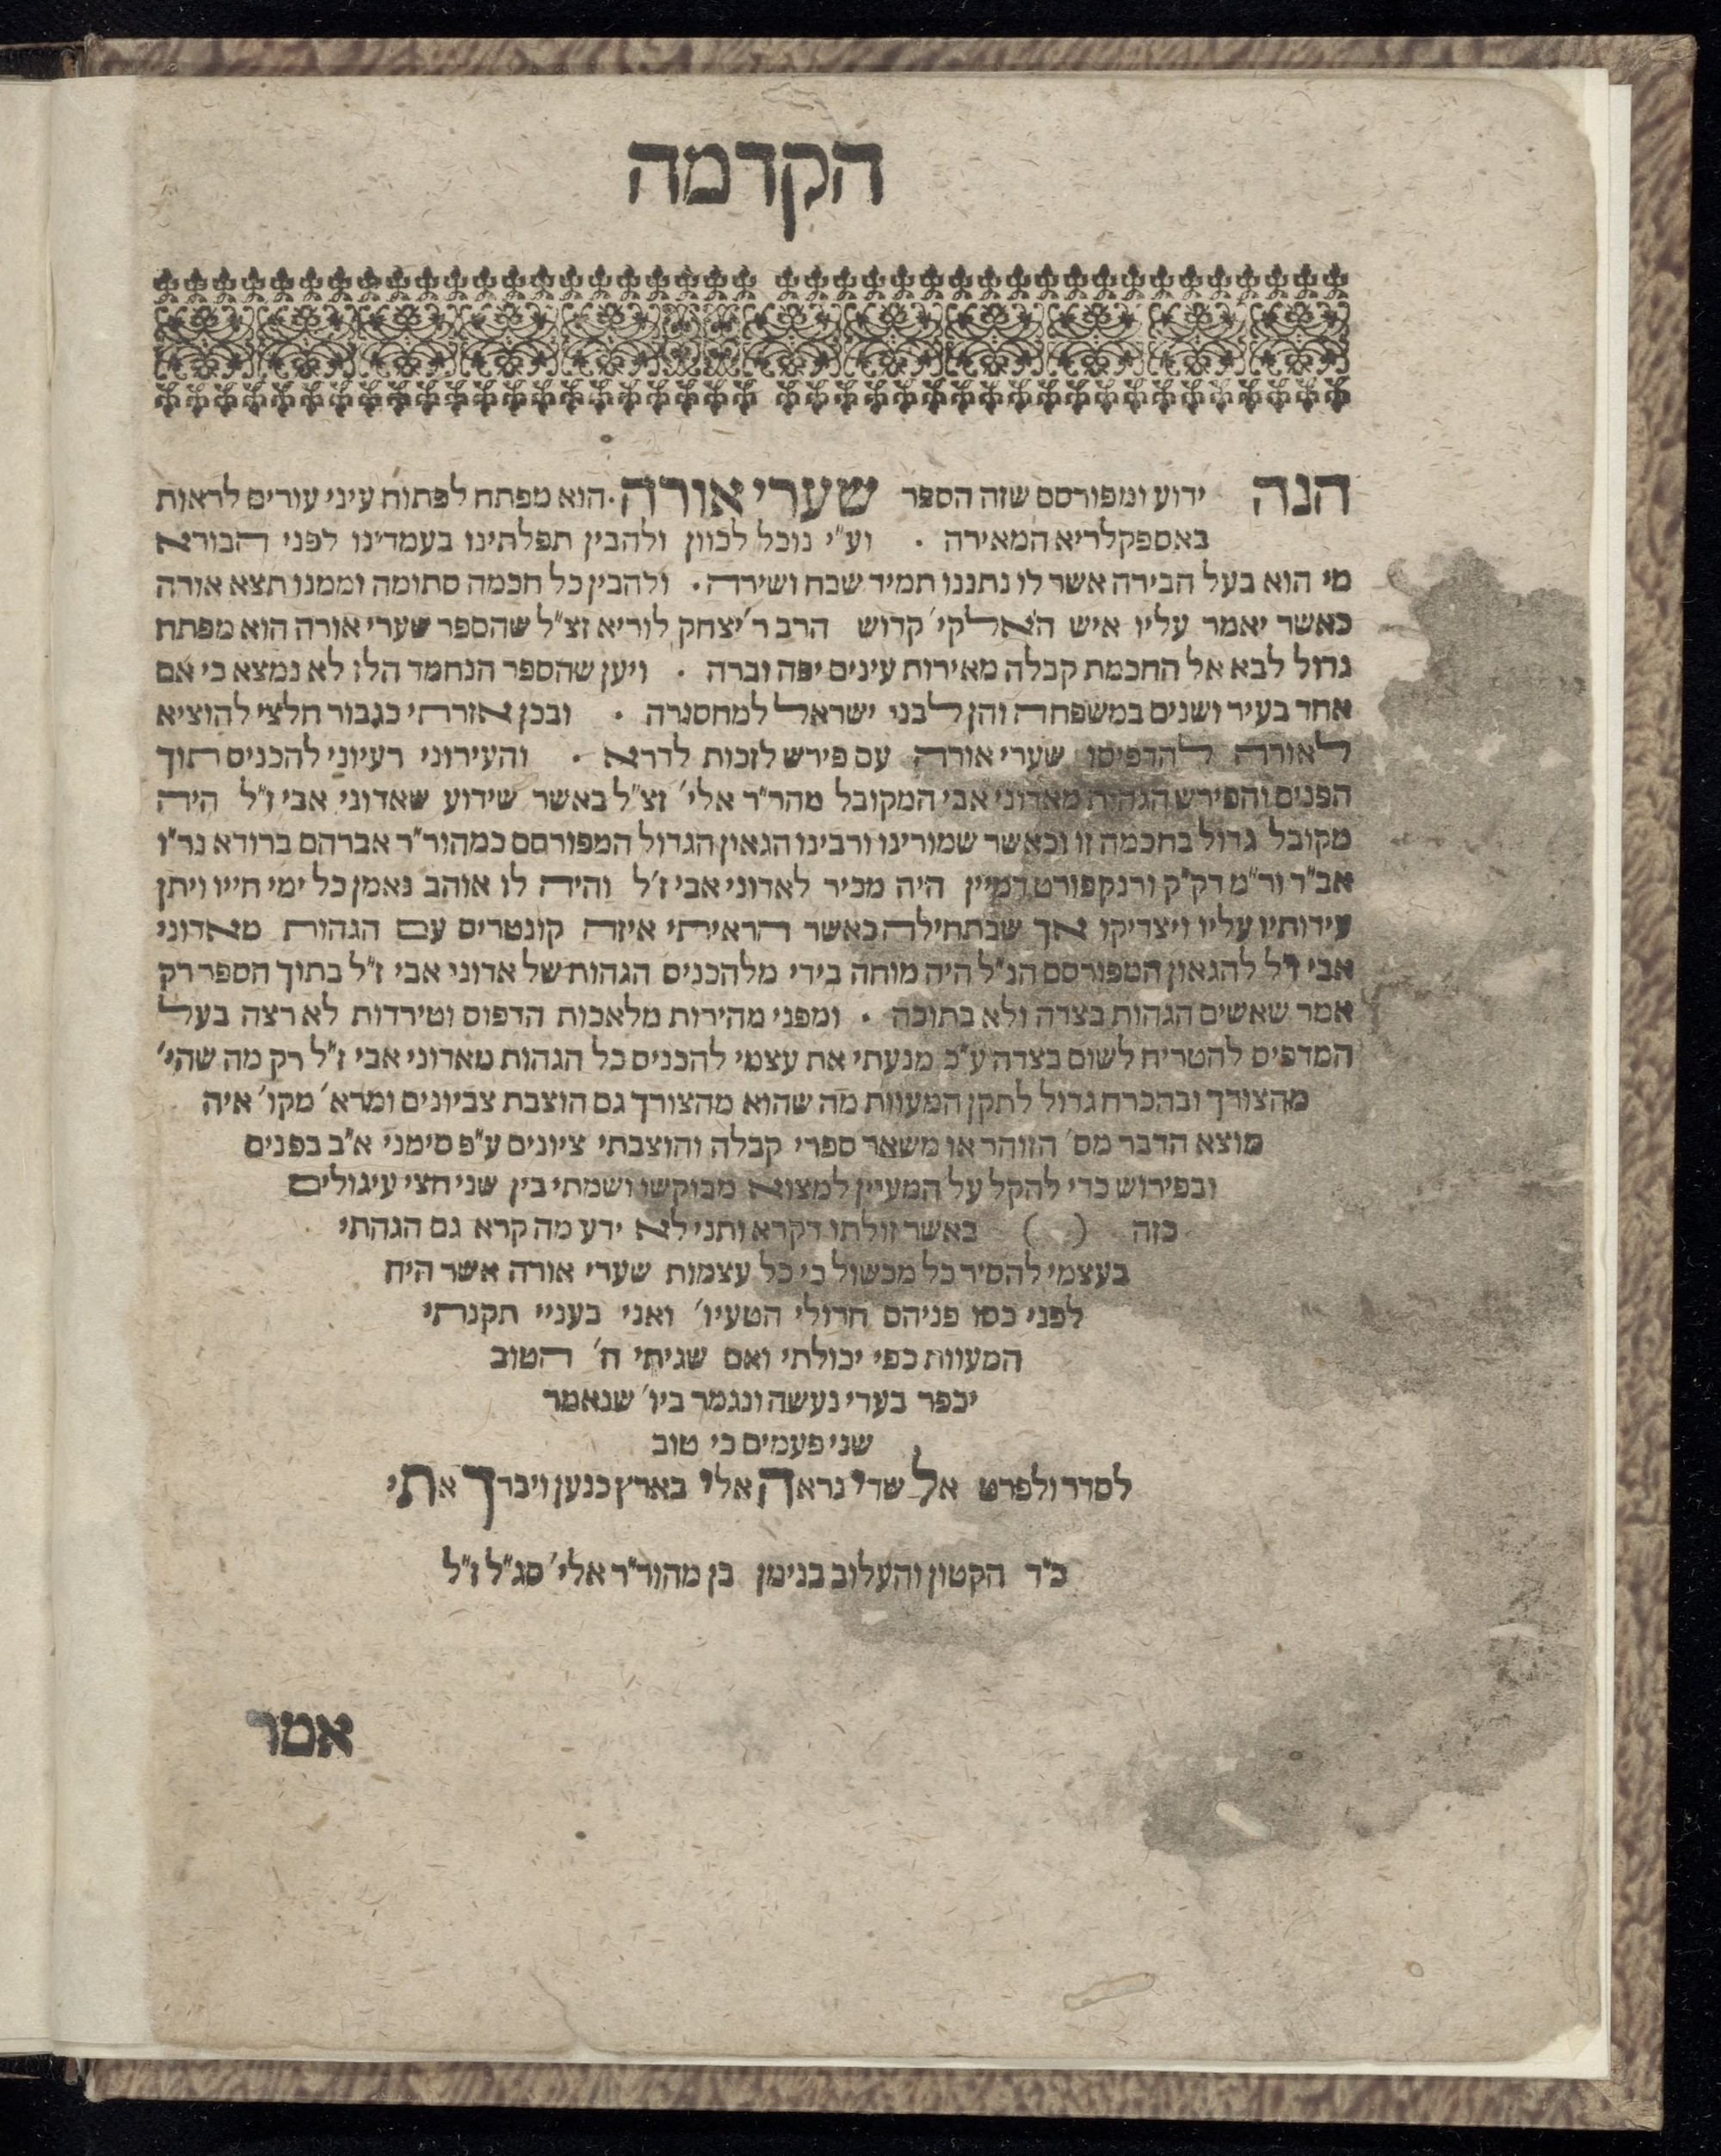 הקדמה
הנה ידוע ומפורסם שזה הספר שערי אורה. הוא מפתח לפתוח עיני עורים לראות
באספקלריא המאירה . וע"י נוכל לכוון ולהבין תפלתינו בעמדינו לפני הבורא
מי הוא בעל הבירה אשר לו נתננו תמיד שבח ושירה. ולהבין כל חכמה סתומה וממנו תצא אורה
כאשר יאמר עליו איש האלקי' קדוש הרב ר' יצחק לוריא זצ"ל שהספר שערי אורה הוא מפתח
גדול לבא אל החכמת קבלה מאירות עינים יפה וברה . ויען שהספר הנחמד הלז לא נמצא כי אם
אחד בעיר ושנים במשפחה והן לבני ישראל למחסורה . ובכן אזרתי כגבור חלצי להוציא
לאורה להדפיסו שערי אורה עם פירש לזכות לדרא . והעירוני רעיוני להכניס תוך
הפנים והפירש הגהות מאדוני אבי המקובל מהר"ר אלי' זצ"ל באשר שידוע שאדוני אבי ז"ל היה
מקובל גדול בחכמה זו וכאשר שמורינו ורבינו הגאון הגדול המפורסם כמהור"ר אברהם ברודא נר"ו
אב"ד ור"מ דק"ק ורנקפורט דמיין היה מכיר לאדוני אבי ז"ל והיה לו אוהב נאמן כל ימי חייו ויתן
עידותיו עליו ויצדיקו אך שבתחילה כאשר הראיתי איזה קונטרים עם הגהות מאדוני
אבי ז"ל להגאון המפורסם הנ"ל היה מוחה בידי מלהכנים הגהות של אדוני אבי ז"ל בתוך הספר רק
אמר שאשים הגהות בצדה ולא בתוכה . ומפני מהירות מלאכות הדפוס וטירדות לא רצה בעל
המדפים להטריח לשום בצדה ע"כ מנעתי את עצמי להכניס כל הגהות מאדוני אבי ז"ל רק מה שהי'
מהצורך ובהכרח גדול לתקן המעוות מה שהוא מהצורך גם הוצבת צביונים ומרא' מקו' איה
מוצא הדבר מס' הזוהר או משאר ספרי קבלה והוצבתי ציונים ע"פ סימני א"ב בפנים
ובפירוש כדי להקל על המעיין למצוא מבוקשו ושמתי בין שני חצי עיגולים
כזה ( ) באשר זולתו דקרא ותני לא ידע מה קרא גם הגהתי
בעצמי להסיר כל מכשול כי כל עצמות שערי אורה אשר היה
לפני כסו פניהם חרולי הטעיו' ואני בעניי תקנתי
המעוות כפי יכולתי ואם שגיתי ה' הטוב
יכפר בעדי נעשה ונגמר ביו' שנאמר
שני פעמים כי טוב
לסדר ולפרט אל שדי נראה אלי בארץ כנען ויברך אתי
כ"ד הקטון והעלוב בנימן בן מהור"ר אלי' סג"ל ז"ל
אמר